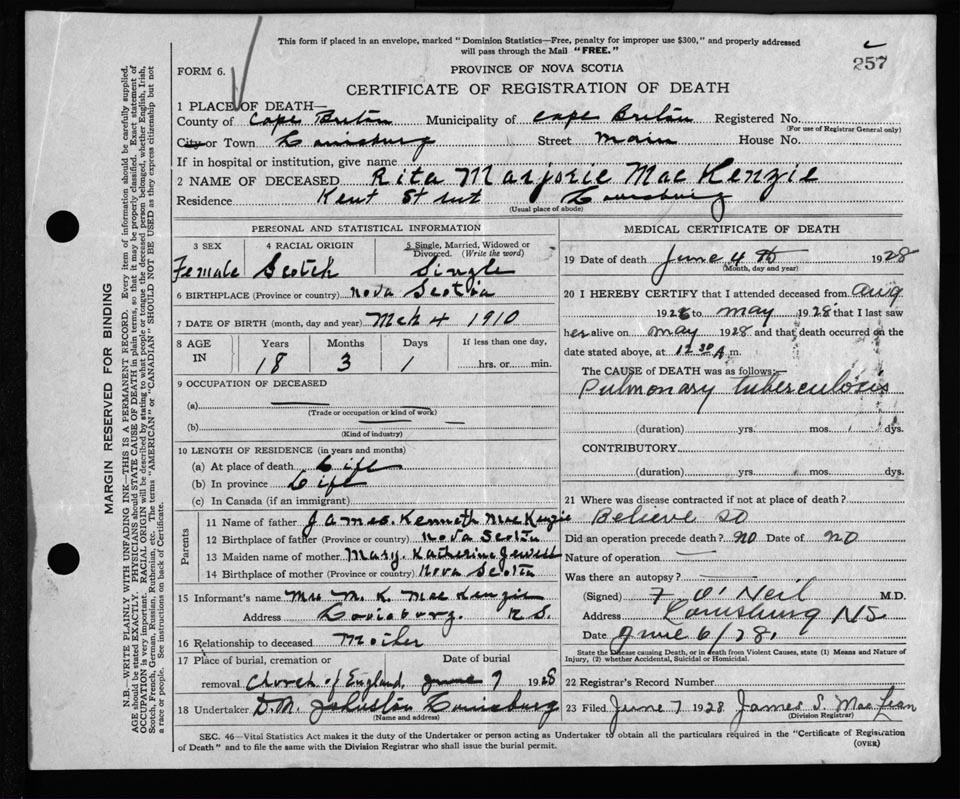 This form if placed in an envelope, marked "Dominion Statistics—Free, penalty for improper use $300," and properly addressed
will pass through the Mail "FREE."
257
FORM 6.
PROVINCE OF NOVA SCOTIA
CERTIFICATE OF REGISTRATION OF DEATH
1 PLACE OF DEATH—
County of Cape Breton Municipality of Cape Breton Registered No.
(For use of Registrar General only)
City or Town Louisburg Street Main House No.
If in hospital or institution, give name
2 NAME OF DECEASED Rita Marjorie MacKenzie
Residence Kent Street Louisburg
(Usual place of abode)
PERSONAL AND STATISTICAL INFORMATION
3 SEX 4 RACIAL ORIGIN 5 Single, Married, Widowed or
Divorced. (Write the word)
Female Scotch Single
6 BIRTHPLACE (Province or country) Nova Scotia
7 DATE OF BIRTH (month, day and year) Mch 4 1910
8 AGE IN Years Months Days If less than one day,
18 3 1 hrs. or min.
9 OCCUPATION OF DECEASED
(a)
(Trade or occupation or kind of work)
(b)
(Kind of industry)
10 LENGTH OF RESIDENCE (in years and months)
(a) At place of death Life
(b) In province Life
(c) In Canada (if an immigrant)
Parents
11 Name of father James Kenneth MacKenzie
12 Birthplace of father (Province or country) Nova Scotia
13 Maiden name of mother Mary Katherine Jewell
14 Birthplace of mother (Province or country) Nova Scotia
15 Informant's name Mrs M. K. MacKenzie
Address Louisburg. N.S.
16 Relationship to deceased Mother
17 Place of burial, cremation or Date of burial
removal Church of England, June 7 1928
18 Undertaker D.M. Johnston Louisburg
(Name and address)
MEDICAL CERTIFICATE OF DEATH
19 Date of death June 4th 1928
(Month, day and year)
20 I HEREBY CERTIFY that I attended deceased from Aug
1926 to May 1928 and that I last saw
her alive on May 1928 and that death occurred on the
date stated above, at 12.30 A m.
The CAUSE of DEATH was as follows:—
Pulmonary tuberculosis
(duration) yrs. mos. dys.
CONTRIBUTORY
(duration) yrs. mos. dys.
21 Where was disease contracted if not at place of death?
Believe so
Did an operation precede death? no Date of no
Nature of operation
Was there an autopsy?
(Signed) F O'Neil M.D.
Address Louisburg NS
Date June 6/28.
State the Disease causing Death, or in death from Violent Causes, state (1) Means and Nature of
Injury, (2) whether Accidental, Suicidal or Homicidal.
22 Registrar's Record Number
23 Filed June 7 1928 James S. MacLean
(Division Registrar)
SEC. 46—Vital Statistics Act makes it the duty of the Undertaker or person acting as Undertaker to obtain all the particulars required in the "Certificate of Registration
of Death" and to file the same with the Division Registrar who shall issue the burial permit.
(OVER)
MARGIN RESERVED FOR BINDING
N.B.—WRITE PLAINLY WITH UNFADING INK—THIS IS A PERMANENT RECORD. Every item of information should be carefully supplied.
AGE should be stated EXACTLY. PHYSICIANS should STATE CAUSE OF DEATH in plain terms, so that it may be properly classified. Exact statement of
OCCUPATION is very important. RACIAL ORIGIN will be described by stating to what people or tongue the deceased person belonged, whether English, Irish,
Scotch, French, German, Russian, Ruthenian, etc. The terms "AMERICAN" or "CANADIAN" SHOULD NOT BE USED as they express citizenship but not
a race or people. See instructions on back of Certificate.